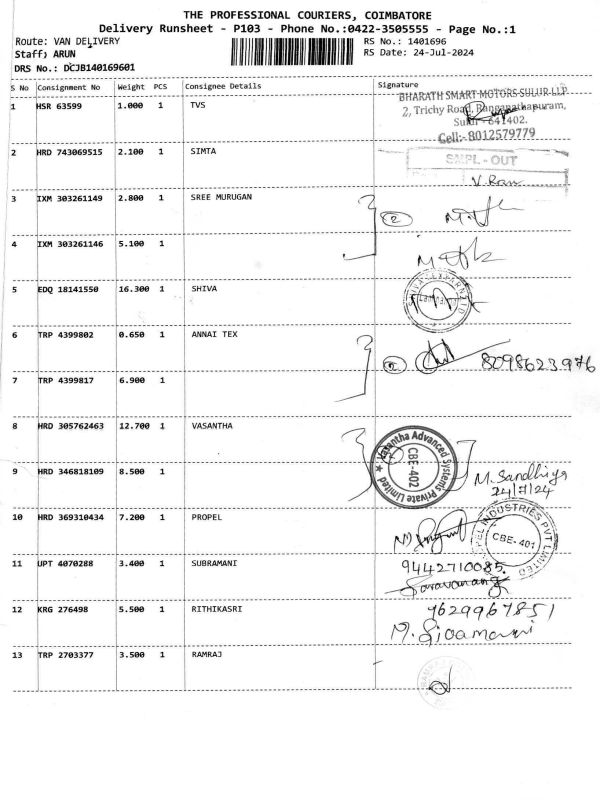 THE PROFESSIONAL COURIERS, COIMBATORE
Delivery Runsheet - P103 - Phone No.:0422-3505555 - Page No.:1
Route: VAN DELIVERY
RS No.: 1401696
Staff: ARUN
RS Date: 24-Jul-2024
DRS No.: DCJB140169601
S No Consignment No Weight PCS Consignee Details Signature
1 HSR 63599 1.000 1 TVS
BHARATH SMART MOTORS SULUR LLP
2, Trichy Road, Ranganathapuram,
Sulur - 641402.
Cell:- 8012579779
2 HRD 743069515 2.100 1 SIMTA
SMPL - OUT
V. Ram
3 IXM 303261149 2.800 1 SREE MURUGAN
2
4 IXM 303261146 5.100 1
5 EDQ 18141550 16.300 1 SHIVA
6 TRP 4399802 0.650 1 ANNAI TEX
8098623976
7 TRP 4399817 6.900 1
8 HRD 305762463 12.700 1 VASANTHA
Vasantha Advanced Systems Private Limited
CBE-402
9 HRD 346818109 8.500 1
M. Sandhiya
24/7/24
10 HRD 369310434 7.200 1 PROPEL
PROPEL INDUSTRIES PVT LIMITED
CBE-401
11 UPT 4070288 3.400 1 SUBRAMANI
9442710085
Saravanan
12 KRG 276498 5.500 1 RITHIKASRI
9629967851
13 TRP 2703377 3.500 1 RAMRAJ